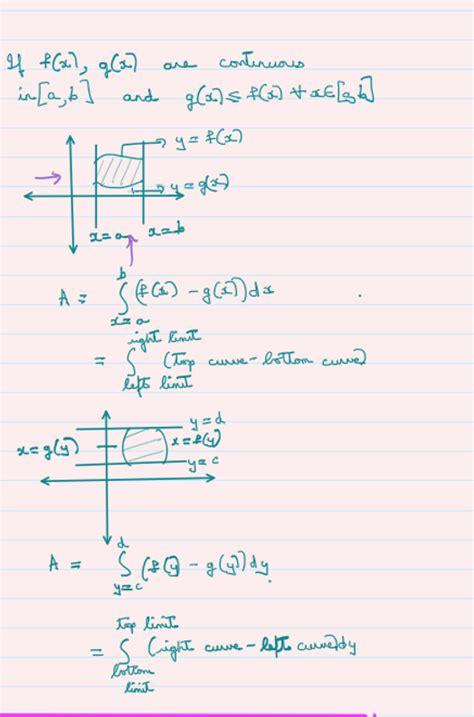 If f(x), g(x) are continuous
in [a, b] and g(x) ≤ f(x) ∀ x∈[a,b]
y = f(x)
y = g(x)
x = a x = b
A = ∫_{x=a}^{b} (f(x) - g(x)) dx
= ∫_{left limit}^{right limit} (Top curve - bottom curve)
y = d
x = g(y) x = f(y)
y = c
A = ∫_{y=c}^{d} (f(y) - g(y)) dy.
= ∫_{bottom limit}^{top limit} (right curve - left curve) dy